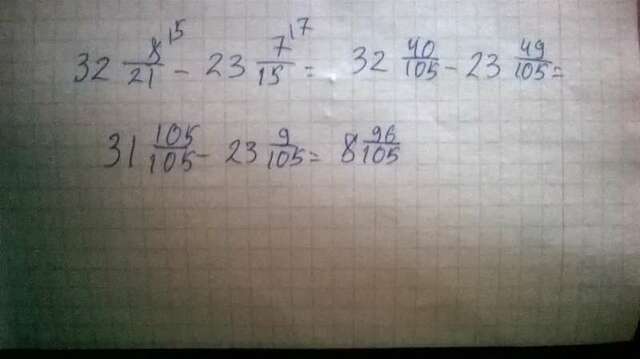 32 8\5/21 - 23 7\7/15 = 32 40/105 - 23 49/105 =
31 105/105 - 23 9/105 = 8 96/105